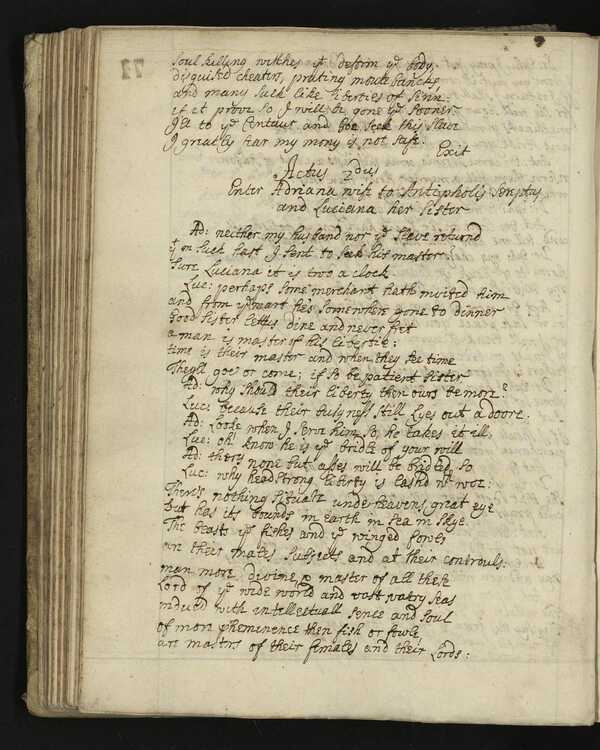 Soul killing witches yt deform ye body,
disguised cheaters, prating mountebancks
and many such like liberties of sinn:
if it prove so I will be gone ye sooner
Ile to ye Centaur and goe seek this slave
I greatly fear my mony is not safe.
Exit
Actus 2dus
Enter Adriana wife to Antipholis Sereptus
and Luciana her sister
Ad: neither my husband nor ye slave returnd
yt in such hast I sent to seek his master!
Sure Luciana it is two a clock.
Luc: perhaps some merchant hath invited him
and from ye mart he's somewhere gone to dinner
Good sister letts dine and never fret
a man is master of his libertie:
time is their master and when they see time
They'll goe or come; if so be patient sister
Ad: why should their liberty then ours be more?
Luc: because their busyness still lyes out a doore.
Ad: Looke when I serve him so, he takes it ill,
Luc: oh know he is ye bridle of your will
Ad: theres none but asses will be bridled so
Luc: why headstrong liberty is lashd wt woe:
There's nothing situate under heavens great eye
but has its bounds in earth in sea in skye
The beasts ye fishes and ye winged fowls
are their males subjects and at their controuls:
man more divine, master of all these
Lord of ye wide world and vast watry seas
indued with intellectuall sence and soul
of more preheminence then fish or fowle,
are masters of their females and their Lords: